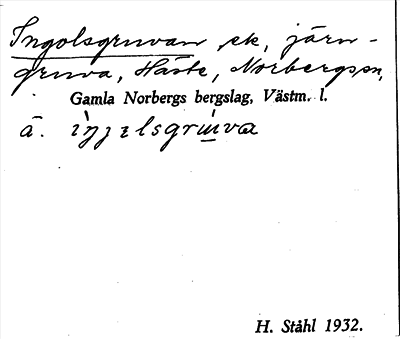 Ingolsgruvan ek, järn-
gruva, Häste, Norbergs sn,
Gamla Norbergs bergslag, Västm. l.
ä. ìŋɟelsgrúva
H. Ståhl 1932.